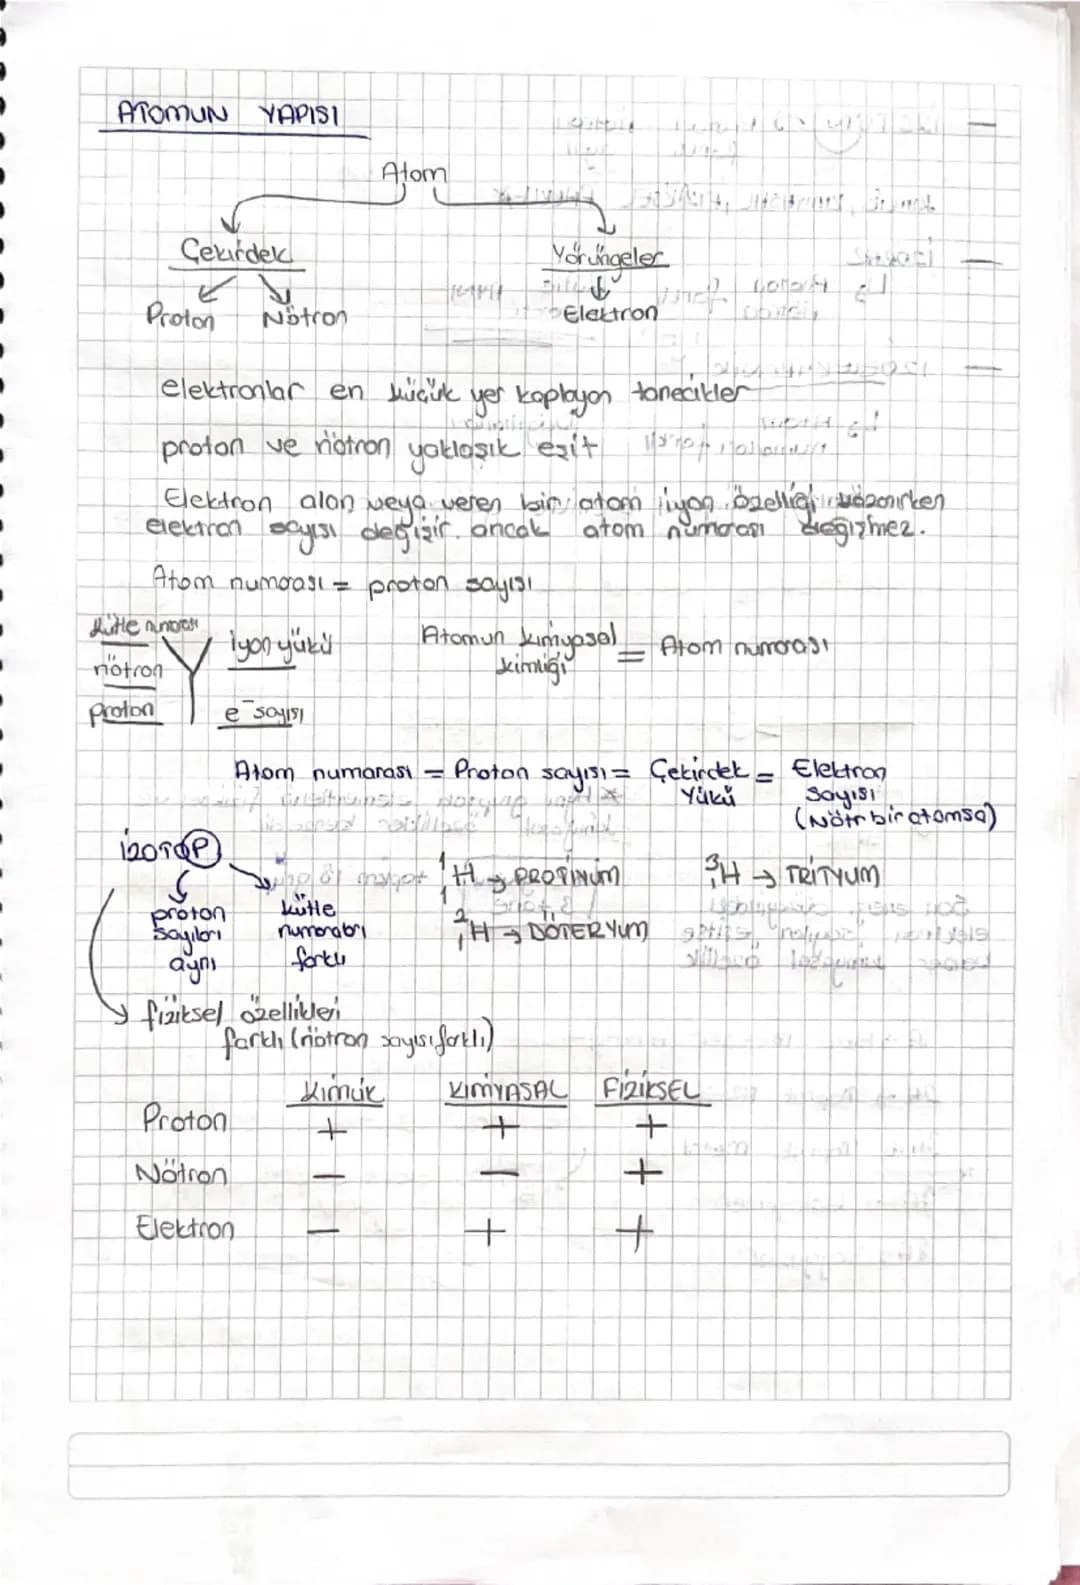 ATOMUN YAPISI
Atom
Çekirdek Yörüngeler
Proton Nötron Elektron
elektronlar en küçük yer kaplayan tanecikler
proton ve nötron yaklaşık eşit
Elektron alan veya veren bir atom iyon özelliği kazanırken
elektron sayısı değişir. ancak atom numarası değişmez.
Atom numarası = proton sayısı
kütle numarası
nötron
proton
Y
iyon yükü
e⁻ sayısı
Atomun kimyasal kimliği = Atom numarası
Atom numarası = Proton sayısı = Çekirdek Yükü = Elektron Sayısı
(Nötr bir atomsa)
İZOTOP
proton sayıları aynı
kütle numaraları farklı
¹₁H → PROTİYUM
²₁H → DÖTERYUM
³₁H → TRİTYUM
fiziksel özellikleri
farklı (nötron sayısı farklı)
KİMLİK KİMYASAL FİZİKSEL
Proton + + +
Nötron — — +
Elektron — + +